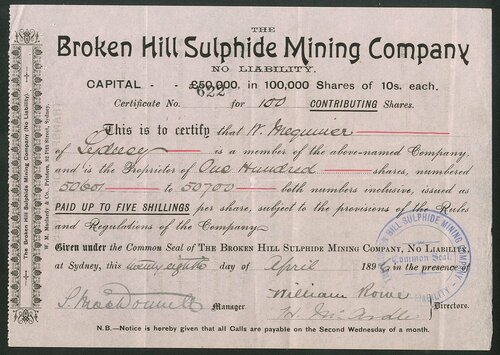 THE
Broken Hill Sulphide Mining Company
NO LIABILITY.
CAPITAL - - £50,000, in 100,000 Shares of 10s. each.
Certificate No. 622 for 100 CONTRIBUTING Shares.
This is to certify that W.
of Sydney is a member of the above-named Company,
and is the Proprietor of One Hundred shares, numbered
50601 to 50700 both numbers inclusive, issued as
PAID UP TO FIVE SHILLINGS per share, subject to the provisions of the Rules
and Regulations of the Company.
Given under the Common Seal of THE BROKEN HILL SULPHIDE MINING COMPANY, NO LIABILITY,
at Sydney, this twenty eighth day of April 1896 in the presence of
William Rowe
Manager.
Directors.
N.B.—Notice is hereby given that all Calls are payable on the Second Wednesday of a month.
The Broken Hill Sulphide Mining Company (No Liability).
W. M. Maclardy & Co. Printers, Pitt Street, Sydney.
HILL SULPHIDE MINING COMPANY
Common Seal
LIABILITY